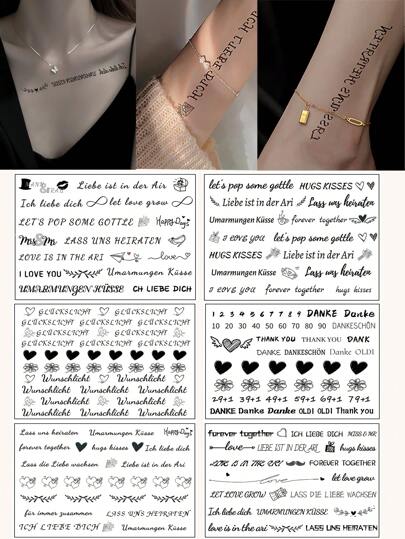 ICH LIEBE DICH
Liebe ist in der Air
Ich liebe dich let love grow
LET'S POP SOME GOTTLE Happy Day!
Mr Mrs LASS UNS HEIRATEN
LOVE IS IN THE ARI love
I LOVE YOU Umarmungen Küsse
UMARMUNGEN KÜSSE CH LIEBE DICH
let's pop some gottle HUGS KISSES
Liebe ist in der Ari Lass uns heiraten
Umarmungen Küsse forever together
I LOVE YOU let's pop some gottle
HUGS KISSES Liebe ist in der Ari
Umarmungen Küsse Lass uns heiraten
I LOVE YOU forever together hugs kisses
GLÜCKSLICHT GLÜCKSLICHT
GLÜCKSLICHT GLÜCKSLICHT GLÜCKSLICHT
GLÜCKSLICHT GLÜCKSLICHT
GLÜCKSLICHT GLÜCKSLICHT GLÜCKSLICHT
Wunschlicht Wunschlicht
Wunschlicht Wunschlicht Wunschlicht
Wunschlicht Wunschlicht
Wunschlicht Wunschlicht Wunschlicht
1 2 3 4 5 6 7 8 9 DANKE Danke
10 20 30 40 50 60 70 80 90 DANKESCHÖN
THANK YOU THANK YOU DANK
DANKE DANKESCHÖN Danke OLD!
29+1 39+1 49+1 59+1 69+1 79+1
DANKE Danke Danke OLD! OLD! Thank you
Lass uns heiraten Umarmungen Küsse Happy Day!
forever together hugs kisses Ich liebe dich
Lass die Liebe wachsen Liebe ist in der Ari
für immer zusammen LASS UNS HEIRATEN
ICH LIEBE DICH Umarmungen Küsse
forever together ICH LIEBE DICH
love LIEBE IST IN DER ARI hugs kisses
LOVE IS IN THE ARI FOREVER TOGETHER
love let love grow
LET LOVE GROW LASS DIE LIEBE WACHSEN
Ich liebe dich UMARMUNGEN KÜSSEN
love is in the ari LASS UNS HEIRATEN